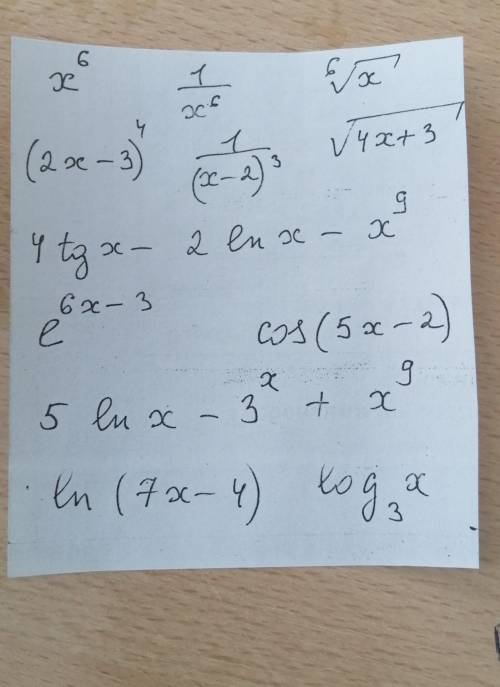 x⁶ 1/x⁶ ⁶√x
(2x-3)⁴ 1/(x-2)³ √4x+3
4 tg x - 2 ln x - x⁹
e⁶ˣ⁻³ cos(5x-2)
5 ln x - 3ˣ + x⁹
ln (7x-4) log₃x